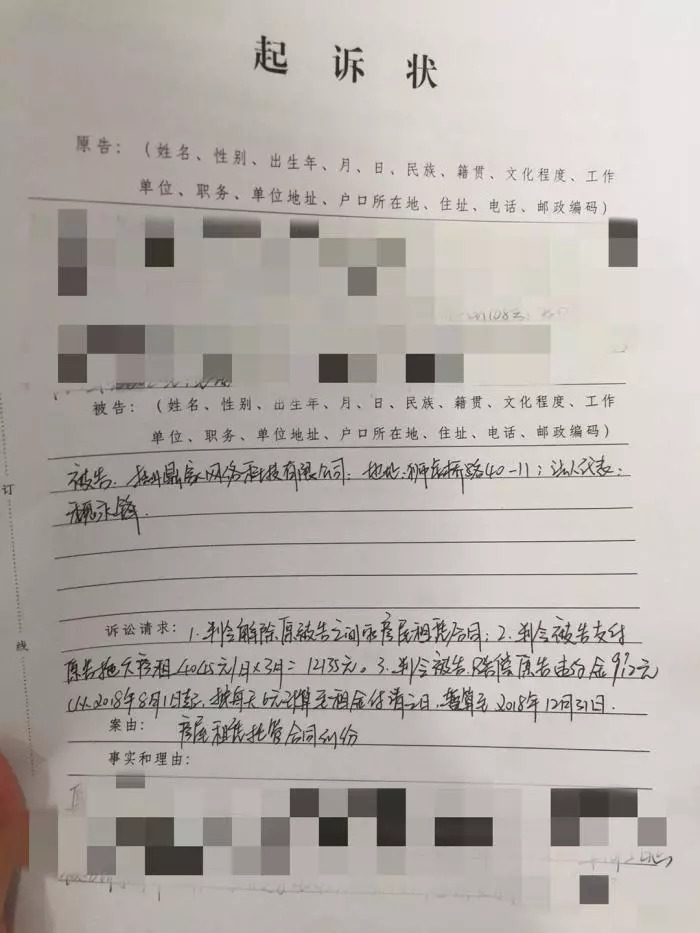 起诉状
原告：（姓名、性别、出生年、月、日、民族、籍贯、文化程度、工作
单位、职务、单位地址、户口所在地、住址、电话、邮政编码）
被告：（姓名、性别、出生年、月、日、民族、籍贯、文化程度、工作
单位、职务、单位地址、户口所在地、住址、电话、邮政编码）
被告：杭州鼎家网络科技有限公司；地址：狮虎桥路40-11；法人代表：
诉讼请求：1.判令解除原被告之间的房屋租赁合同；2.判令被告支付
原告拖欠房租4045元/月×3月=12135元。3.判令被告赔偿原告违约金912元
（从2018年8月1日起，按每天6元计算至租金付清之日，暂算至2018年12月31日.
案由：房屋租赁托管合同纠纷
事实和理由：
订
线